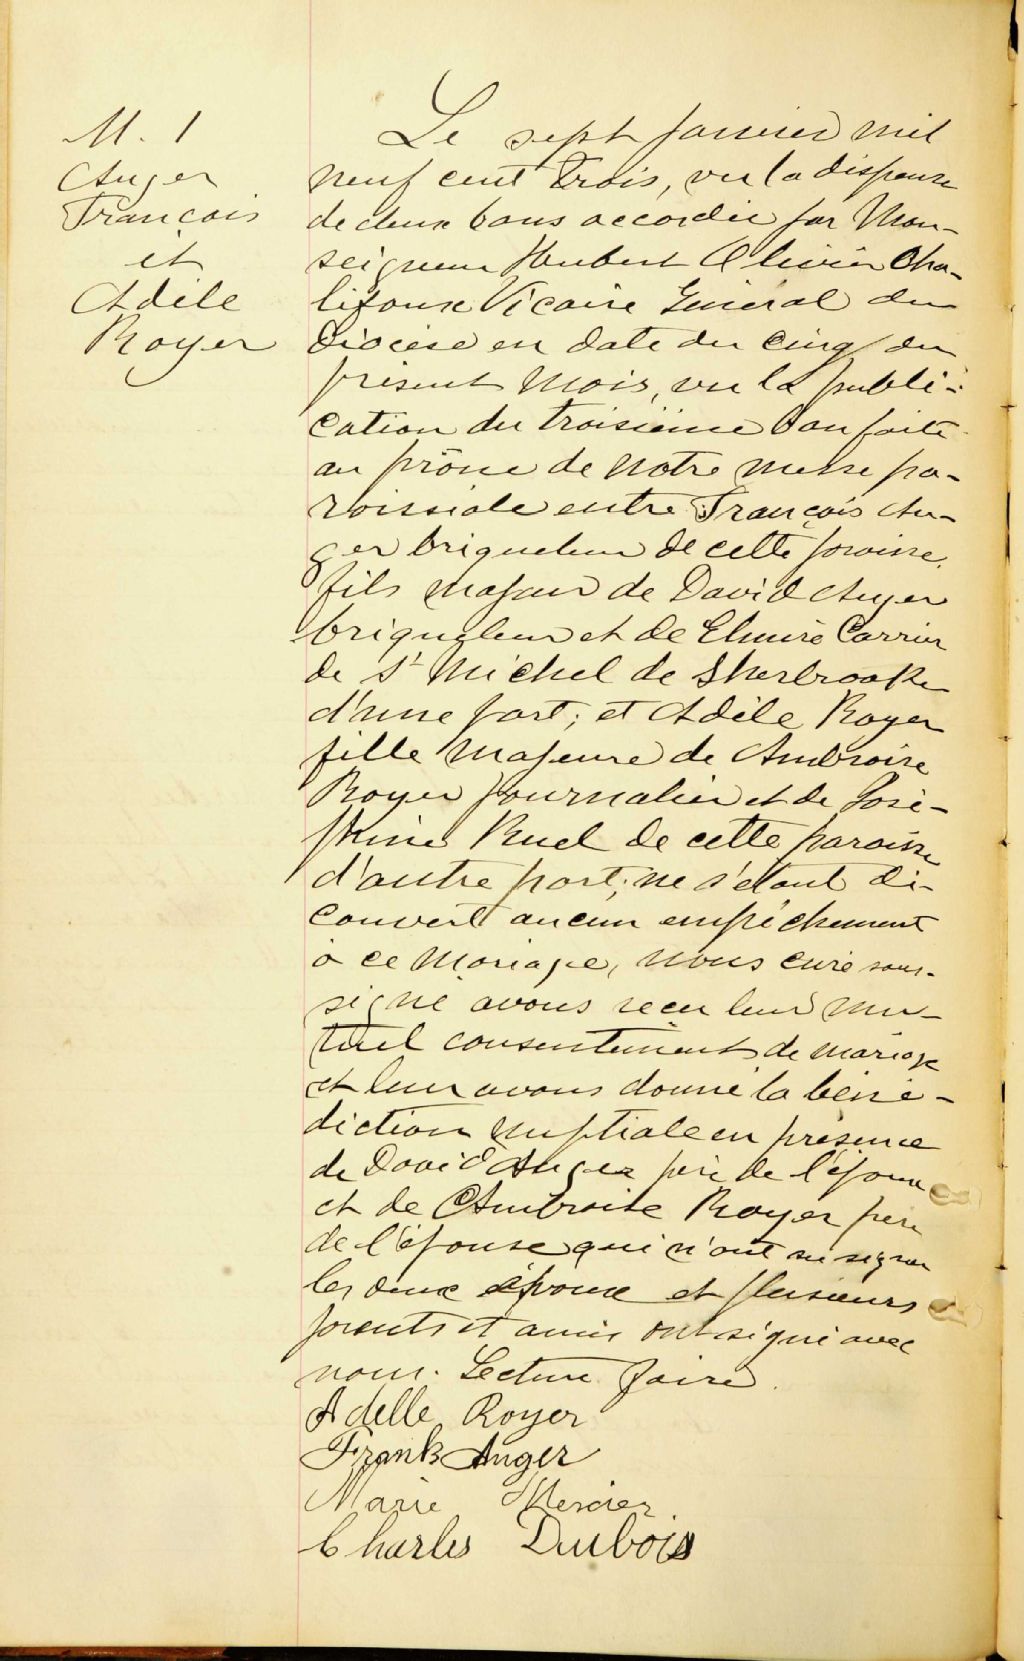 M. 1
Auger
François
et
Adèle
Royer
Le sept janvier mil
neuf cent trois, vu la dispense
de deux bans accordée par Mon-
seigneur Hubert Olivier Cha-
lifoux Vicaire Général du
Diocèse en date du cinq du
présent mois, vu la publi-
cation du troisième ban faite
au prône de notre messe pa-
roissiale entre François Au-
ger briqueleur de cette paroisse
fils majeur de David Auger
briqueleur et de Elmire Carrier
de St Michel de Sherbrooke
d'une part; et Adèle Royer
fille majeure de Ambroise
Royer journalier et de José-
phine Ruel de cette paroisse
d'autre part; ne s'étant dé-
couvert aucun empêchement
à ce mariage, nous curé sous-
signé avons reçu leur mu-
tuel consentement de mariage
et leur avons donné la béné-
diction nuptiale en présence
de David Auger père de l'époux
et de Ambroise Royer père
de l'épouse qui n'ont su signer
les deux époux et plusieurs
parents et amis ont signé avec
nous. Lecture faite.
Adelle Royer
Frank Auger
Marie Mercier
Charles Dubois